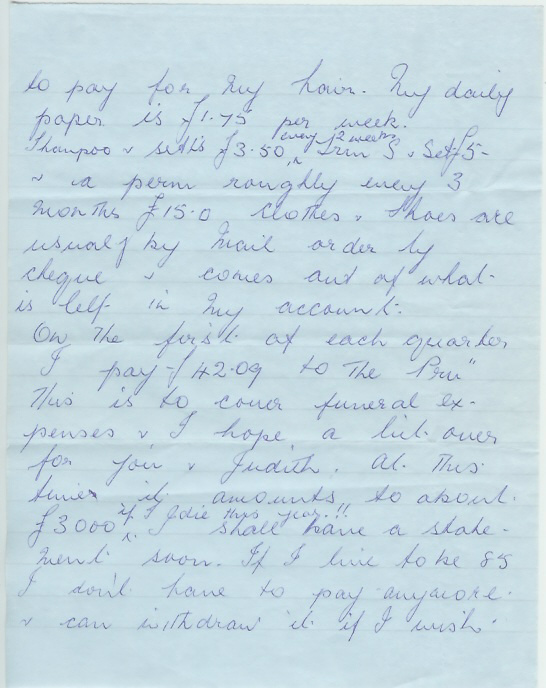 to pay for my hair. My daily
paper is £1.75 per week.
every 2 weeks
Shampoo & set is £3.50, Trim 3 & Set £5-
& a perm roughly every 3
months £15.0 Clothes & Shoes are
usually by mail order by
cheque & comes out of what
is left in my account.
On the first of each quarter
I pay £42.09 to the "Pru"
This is to cover funeral ex-
penses & I hope a bit over
for you & Judith. At this
time it amounts to about
if I die this year!!
£3000. I shall have a state-
ment soon. If I live to be 85
I don't have to pay anymore
& can withdraw it if I wish